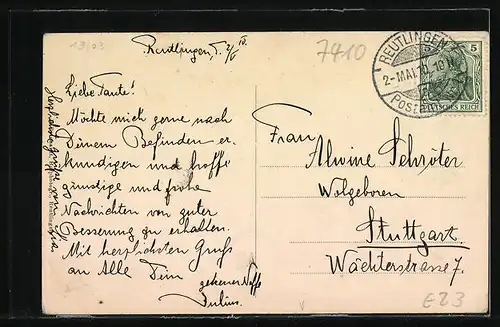 13/03
7410
Reutlingen, d. 2/V
REUTLINGEN
2-MAI.11. 10
Postamt
5
DEUTSCHES REICH
Liebe Tante!
Möchte mich gerne nach
Deinem Befinden er-
kundigen und hoffe
günstige und frohe
Nachrichten von guter
Besserung zu erhalten.
Mit herzlichsten Gruß
an Alle Dein
Neffe
Julius.
Herzliche Grüße von
Frau
Alwine Schröter
Wolgeboren
Stuttgart
Wächterstrasse 7.
E23